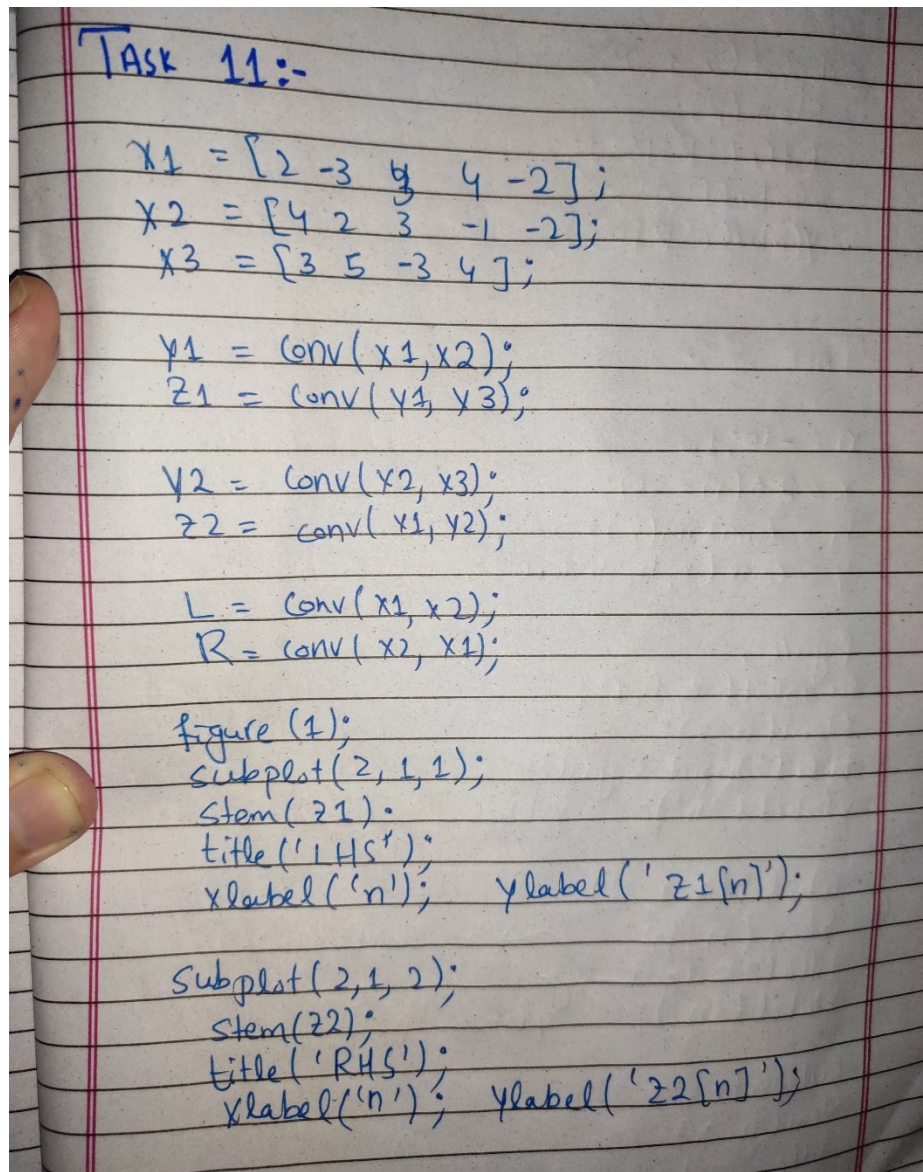 TASK 11:-
x1 = [2 -3 4 -2];
x2 = [4 2 3 -1 -2];
x3 = [3 5 -3 4];
y1 = conv(x1,x2);
z1 = conv(y1, y3);
y2 = conv(x2, x3);
z2 = conv(x1, y2);
L = conv(x1, x2);
R = conv(x2, x1);
figure (1);
subplot(2,1,1);
stem(z1);
title('LHS');
xlabel('n'); ylabel('z1[n]');
subplot(2,1,2);
stem(z2);
title('RHS');
xlabel('n'); ylabel('z2[n]');